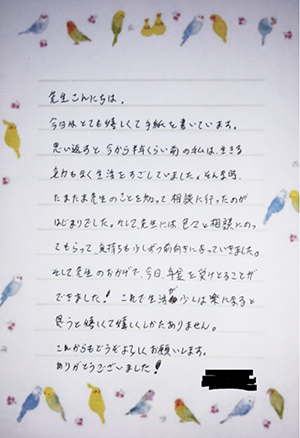 先生こんにちは。
今日はとても嬉しくて手紙を書いています。
思い返すと、今から半年くらい前の私は、生きる
気力もなく生活をすごしていました。そんな時、
たまたま先生のことを知って相談に行ったのが
はじまりでした。そして先生には、色々と相談にのっ
てもらって、気持ちも少しずつ前向きになっていきました。
そして先生のおかげで、今日、年金を受けとることが
できました! これで生活が少しは楽になると
思うと嬉しくて嬉しくてしかたありません。
これからもどうぞよろしくお願いします。
ありがとうございました!